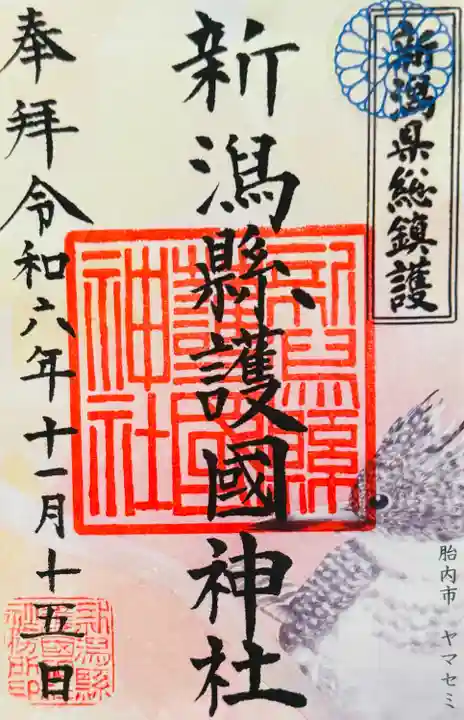 新潟県総鎮護
新潟縣護國神社
奉拝令和六年十一月十五日
新潟縣
護國
神社
新潟縣
護國神
社務所印
胎内市 ヤマセミ